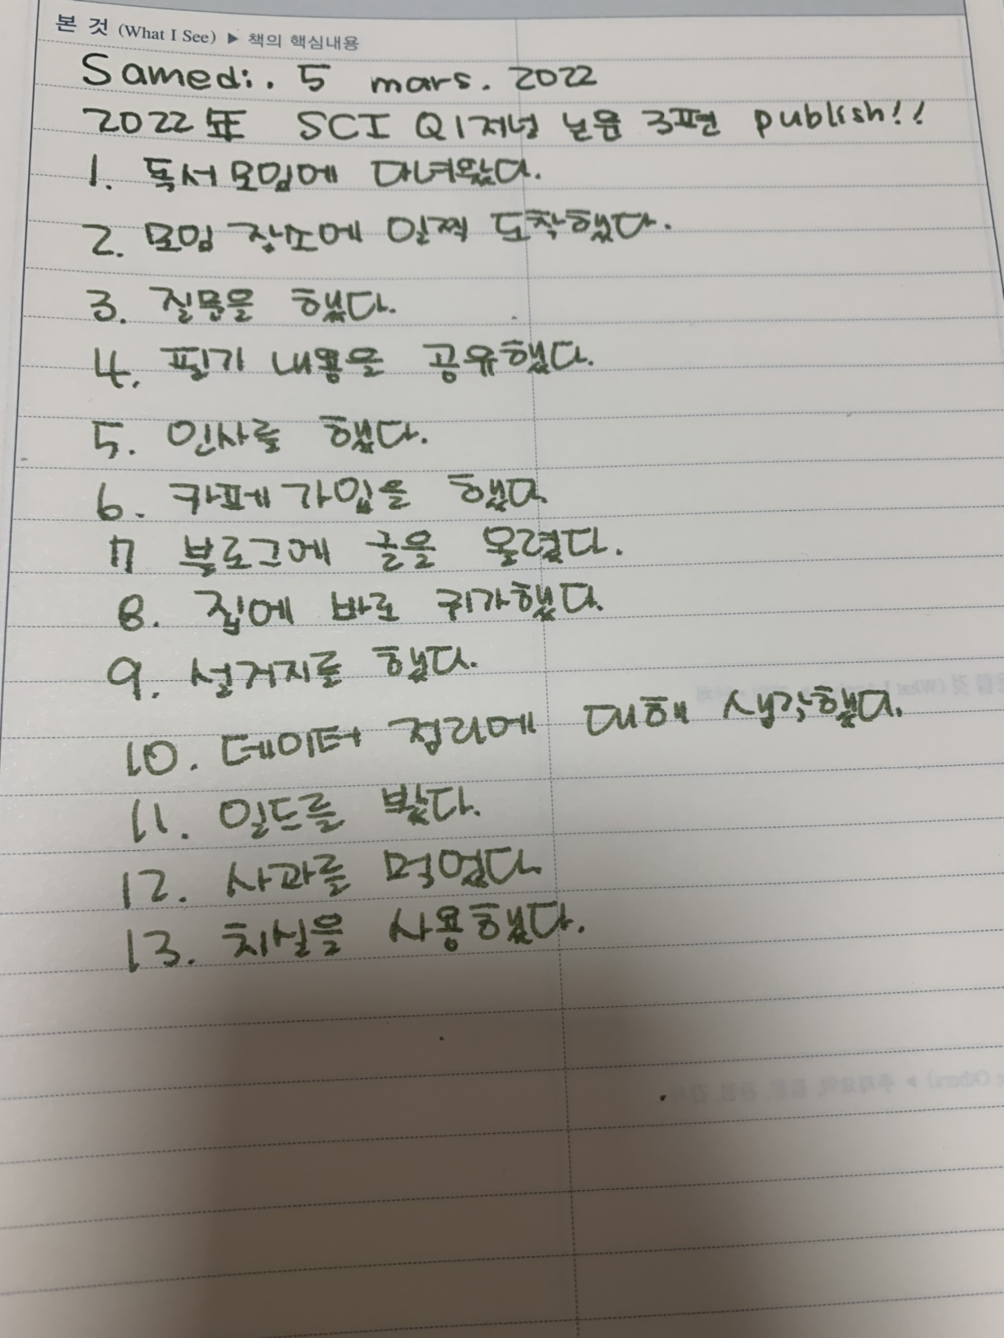 본 것 (What I See) ▶ 책의 핵심내용
Samedi. 5 mars. 2022
2022年 SCI Q1저널 논문 3편 publish!!
1. 독서모임에 다녀왔다.
2. 모임 장소에 일찍 도착했다.
3. 질문을 했다.
4. 필기 내용을 공유했다.
5. 인사를 했다.
6. 카페 가입을 했다
7 블로그에 글을 올렸다.
8. 집에 바로 귀가했다.
9. 설거지를 했다.
10. 데이터 정리에 대해 생각했다.
11. 일드를 봤다.
12. 사과를 먹었다.
13. 치실을 사용했다.